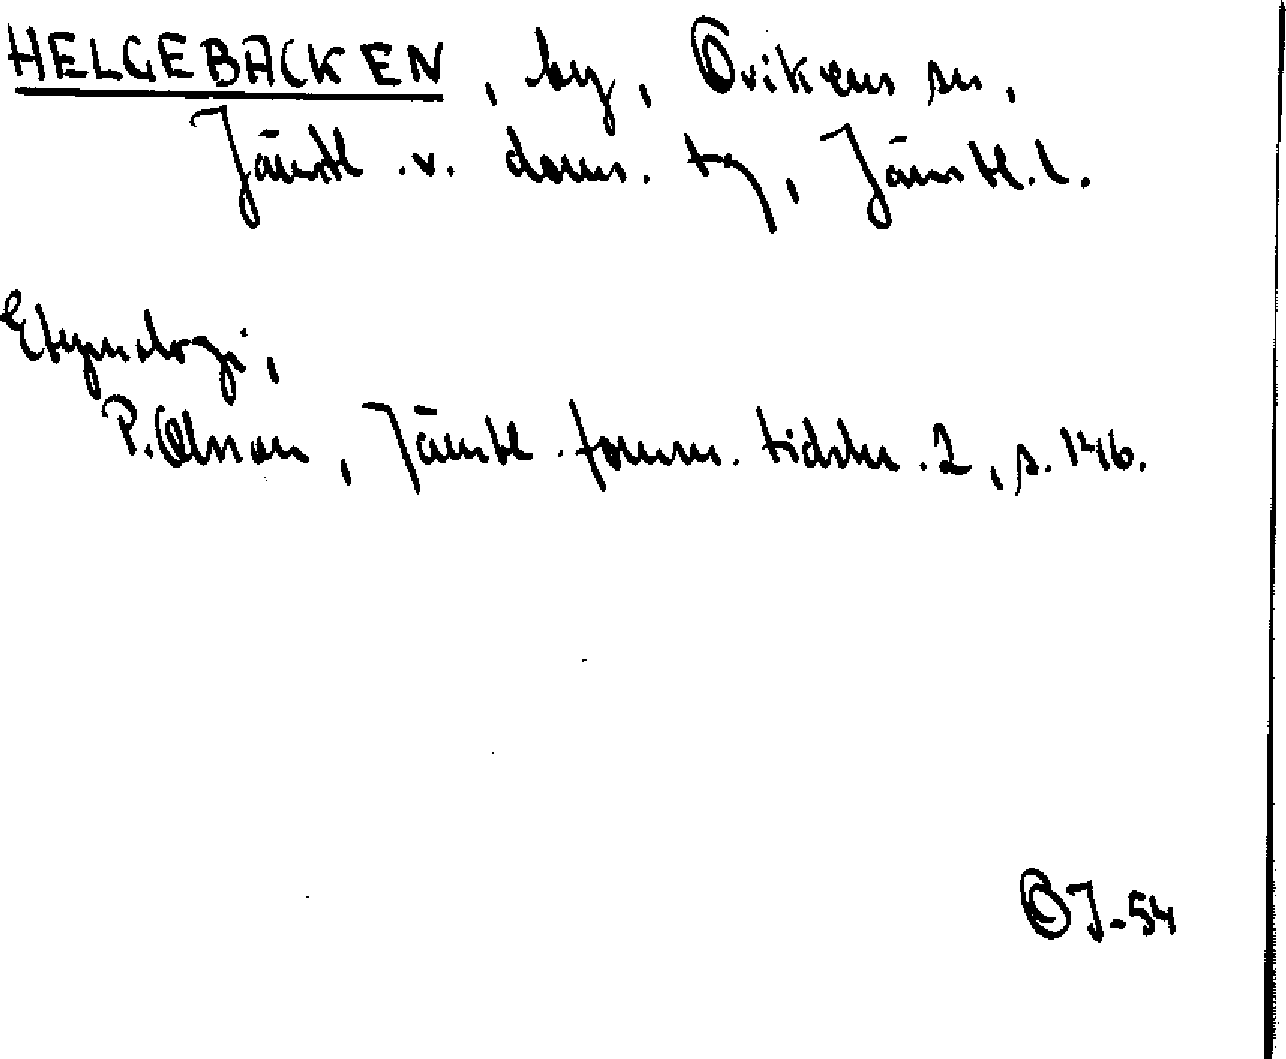 HELGEBACKEN, by, Ovikens sn,
Jämtl. v. doms. tg, Jämtl. l.
Etymologi,
P. Olsson, Jämtl. fornm. tidskr. 2, s. 146.
OJ-54